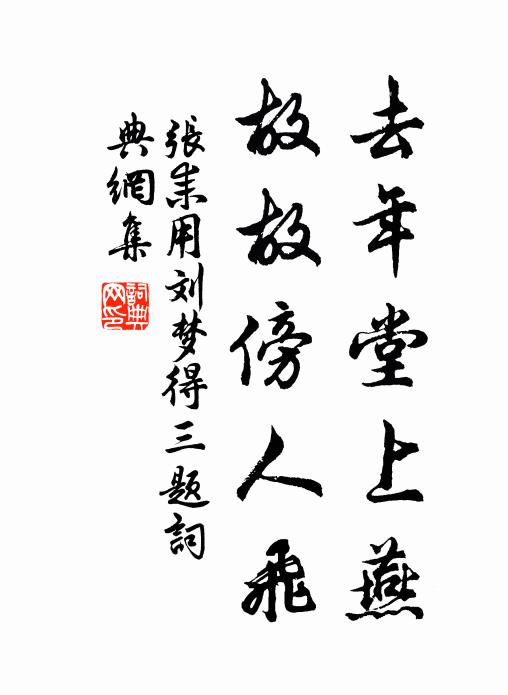 去年堂上燕
故故傍人飛
張耒用刘梦得三题詞
典網集
詞典
网印